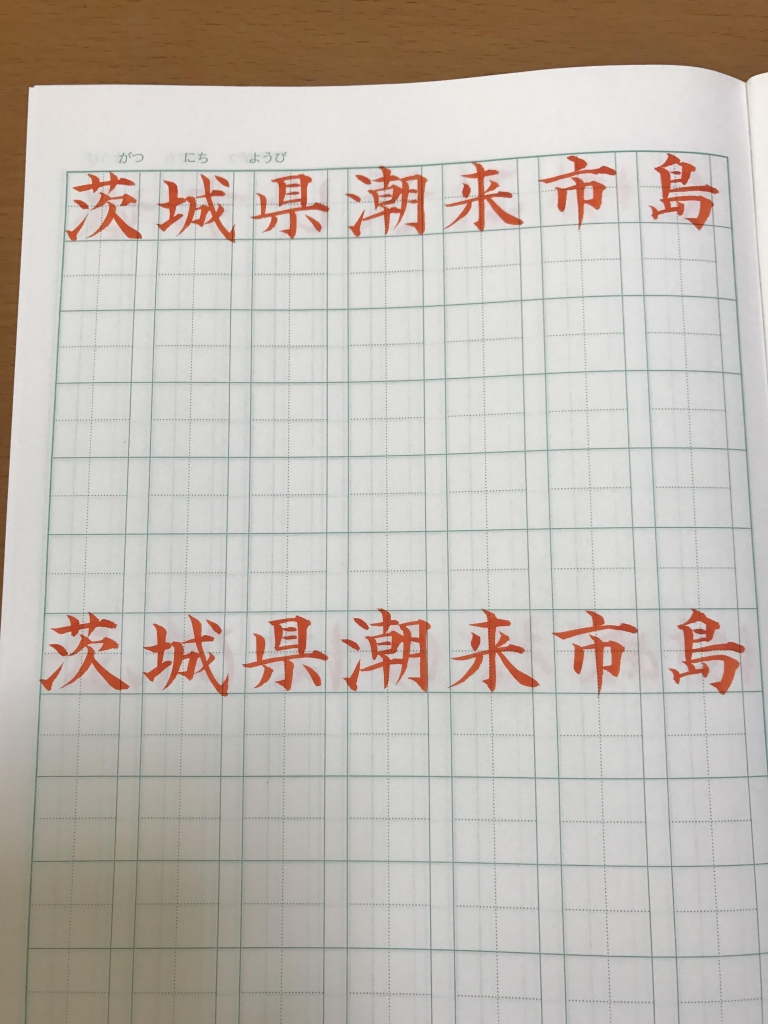 がつ にち ようび
茨城県潮来市島
茨城県潮来市島